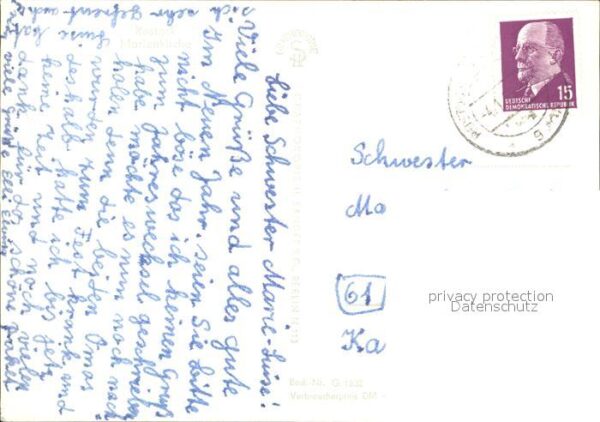 Liebe Schwester Marie-Luise!
Viele Grüße und alles gute
Im Neuen Jahr. seien Sie bitte
nicht böse das ich keinen Gruß
zum Jahreswechsel geschrieben
habe möchte es nun noch nach
holen denn die beiden Omas
wurden zum Fest krank und
deshalb hatte ich bis jetzt
keine zeit und noch vielen
dank für das schöne Paket
viele Grüße
sich sehr gefreut auch
Rostock
Marienkirche
DEUTSCHE
DEMOKRATISCHE REPUBLIK
15
Schwester
Ma
61
Ka
privacy protection
Datenschutz
Best.-Nr. G
Verbraucherpreis DM